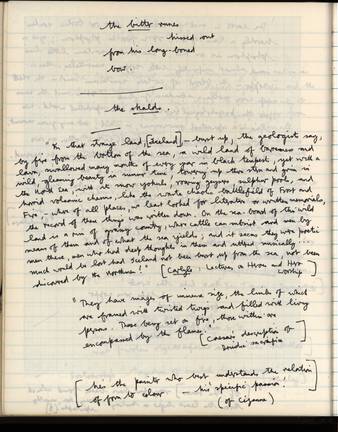 the bitter runes
hissed out
from his long-boned
bow.
the skalds.
"In that strange land, [Iceland] – burst up, the geologists say,
by fire from the bottom of the sea, a wild land of barrenness and
lava, swallowed many months of every year in black tempest, yet with a
wild, gleaming beauty in summer time, towering up there stern and grim in
the North Sea, with its snow yokuls, roaring geysers, sulphur pools, and
horrid volcanic chasms, like the waste chaotic battlefield of Frost and
Fire, – where, of all places, we least looked for literature or written memorials,
the record of these things was written down. On the sea board of this wild
land is a rim of grassy country, where cattle can subsist, and men by
means of them and of what the sea yields; and it seems they were poetic
men these, men who had deep thoughts in them and uttered musically ....
Much would be lost had Iceland not been burst up from the sea, not been
discovered by the Northmen!"
[Carlyle: Lectures on Heroes and Hero
Worship.
"They have images of immense size, the limbs of which
are framed with twisted twigs and filled with living
persons. These being set on fire, those within are
encompassed by the flames."
[Caesar's description of
Druidic sacrifice]
[he's the painter who best understands the relation
of form to colour – his specific passion!
(of Cézanne)]